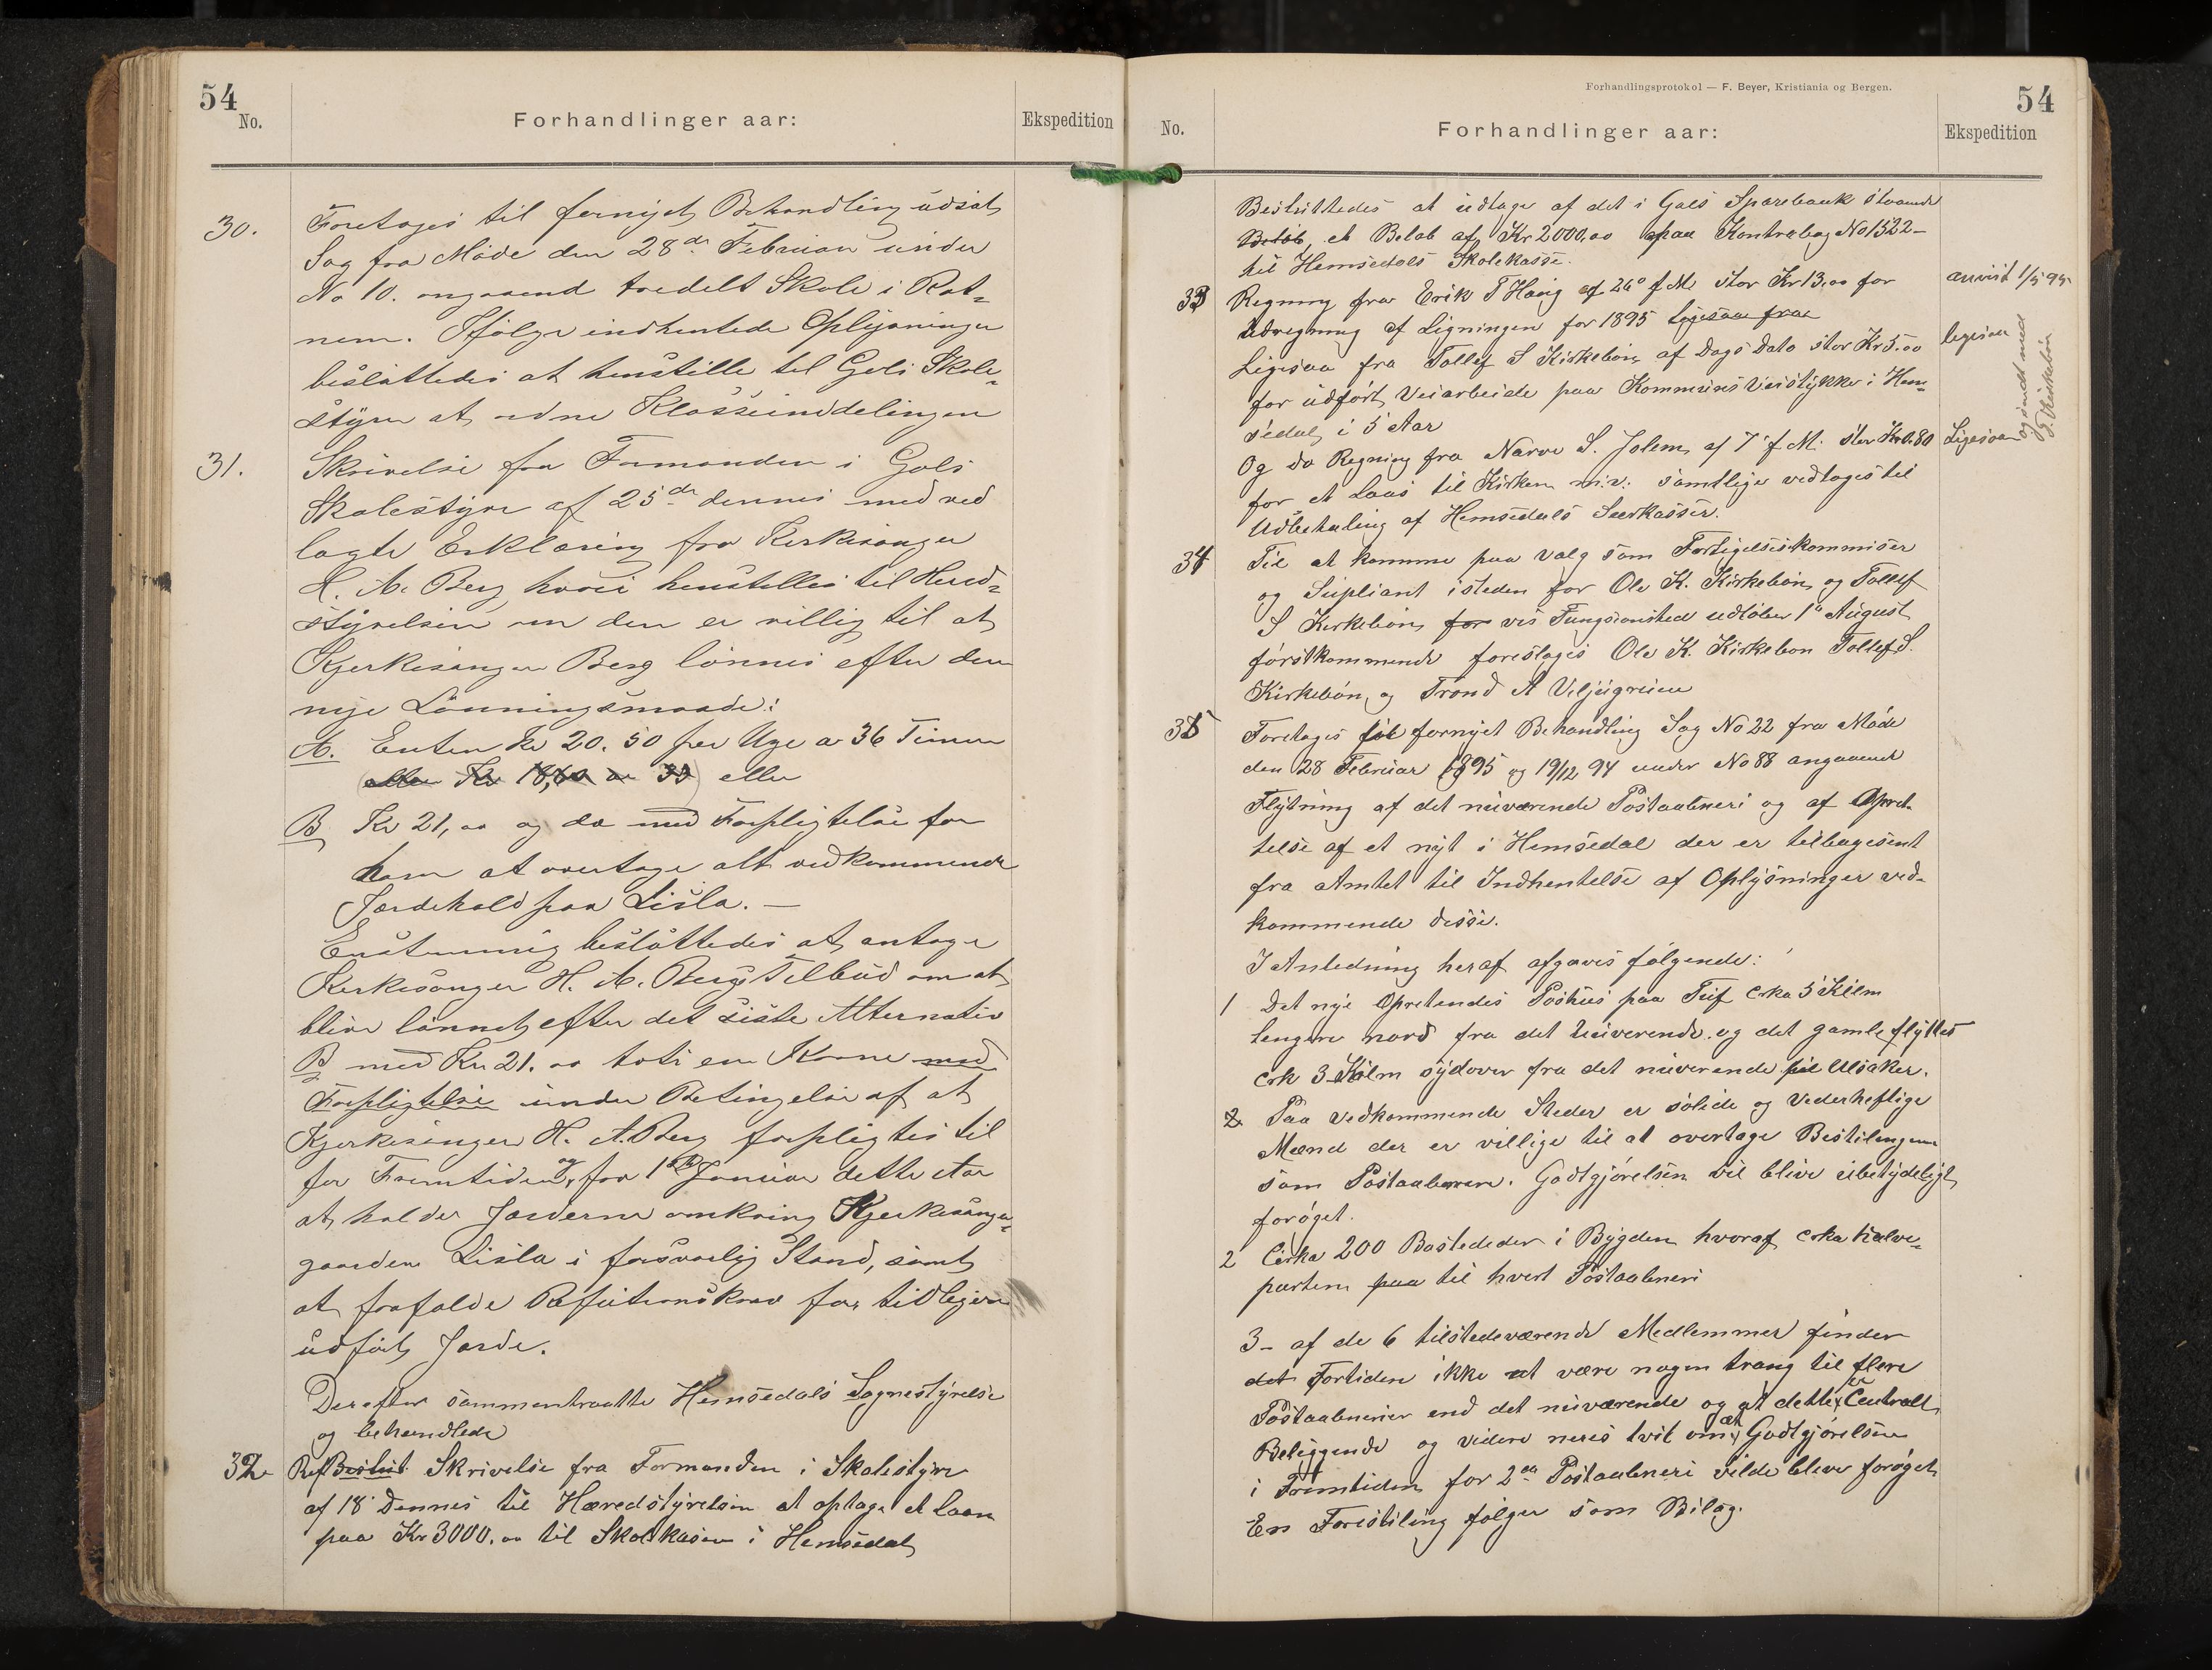 54
No.
Forhandlinger aar:
Ekspedition
30. Foretoges til fornyet Behandling udsat
Sag fra Møde den 28de Februar under
No 10. angaaend tredelt Skole i Rot-
nem. Ifølge indhentede Oplysninger
besluttedes at henstille til Gols Skole-
styre at ordne Klasseinddelingen
31. Skrivelse fra Formanden i Gols
Skolestyre af 25de dennes med ved
lagte Erklæring fra Kirkesanger
H. A. Berg hvori henstilles til Hered-
styrelsen om den er villig til at
Kjerkesanger Berg lønnes efter den
nye Lønningsmaade:
A. Enten Kr 20.50 per Uge a 36 Timer
(eller Kr 18,60 a 33) eller
B Kr 21,00 og da med Forpligtelse for
ham at overtage alt vedkommende
Jordehold paa Lisla. —
Enstemmig besluttedes at antage
Kirkesanger H. A. Bergs Tilbud om at
blive lønnet efter det siste Alternativ
B med Kr. 21.00 toti en Krone med
Forpligtelse under Betingelse af at
Kjerkesanger H. A. Berg forpligtes til
for Fremtiden og fra 1ste Januar dette Aar
at holde Jorderne omkring Kjerkesanger-
gaarden Lisla i forsvarlig Stand, samt
at frafalde Refutionskrav for tidligere
udført Jorde.
Derefter sammentraatte Hemsedals Sognestyrelse
og behandlede
32 Ref Beslut Skrivelse fra Formanden i Skolestyre
af 18' Dennes til Hæredstyrelsen at optage et laan
paa Kr 3000.00 til Skolekasen i Hemsedal
Forhandlingsprotokol — F. Beyer, Kristiania og Bergen.
54
No.
Forhandlinger aar:
Ekspedition
Besluttedes at udtage af det i Gols Sparebank stvaende
Beløb, et Beløb af Kr 2000,00 paa Kontrabog No 1522 -
til Hemsedals Skolekasse.
33 Regning fra Erik T Haug af 26' f. M. stor Kr 13,00 for
anvist 1/5 95
Udregning af Ligningen for 1895 Ligesaa fra
Ligesaa fra Tollef S Kirkebøn af Dags Dato stor Kr 5.00
ligesaa
for udført Veiarbeide paa Kommunes Veistykke i Hem-
sedal i 5 Aar
Og do Regning fra Narve S. Jolem af 7' f. M. stor Kr 0.80
Ligesaa
og sendt med
T. Kirkebøn
for et Laas til Kirken m.v. samtlige vedtoges til
Udbetaling af Hemsedals Særkasser.
34 Til at komme paa Valg som Forligelseskommiser
og Supliant isteden for Ole K. Kirkebøn og Tollef
S Kirkebøn for vis Fungsionsted udløber 1' August
førstkommende foreslages Ole K. Kirkebøn Tollef S.
Kirkebøn og Trond A Veljugreien
35 Foretages til fornyet Behandling Sag No 22 fra Møde
den 28 Februar 1895 og 19/12 94 under No 88 angaaend
Flytning af det nuværende Postaabneri og af Opret-
telse af et nyt i Hemsedal der er tilbagesent
fra Amtet til Indhentelse af Oplysninger ved-
kommende disse.
I Anledning heraf afgaves følgende:
1 Det nye Opretendes Poshus paa Tuf crka 5 Kilm
lengere nord fra det nuverende og det gamle flyttes
crk 3 Kilm sydover fra det nuverende til Ulsaker.
2 Paa vedkommende Steder er solide og vederheftige
Mænd der er villige til at overtage Bestilingene
som Postaabnere. Godtgjørelsen vil blive ubetydeligt
forøget.
2 Cirka 200 Bosteder i Bygden hvoraf crka halve-
parten paa til hvert Postaabneri
3- af de 6 tilstedeværende Medlemmer finder
det Fortiden ikke at være nogen trang til flere
Postaabnerier end det nuværende og at dette er Centralt
Beliggende og videre neres tvil om at Godtgjørelsen
i Fremtiden for 2de Postaabneri vilde bleve forøget
En Forestiling følger som Bilag.